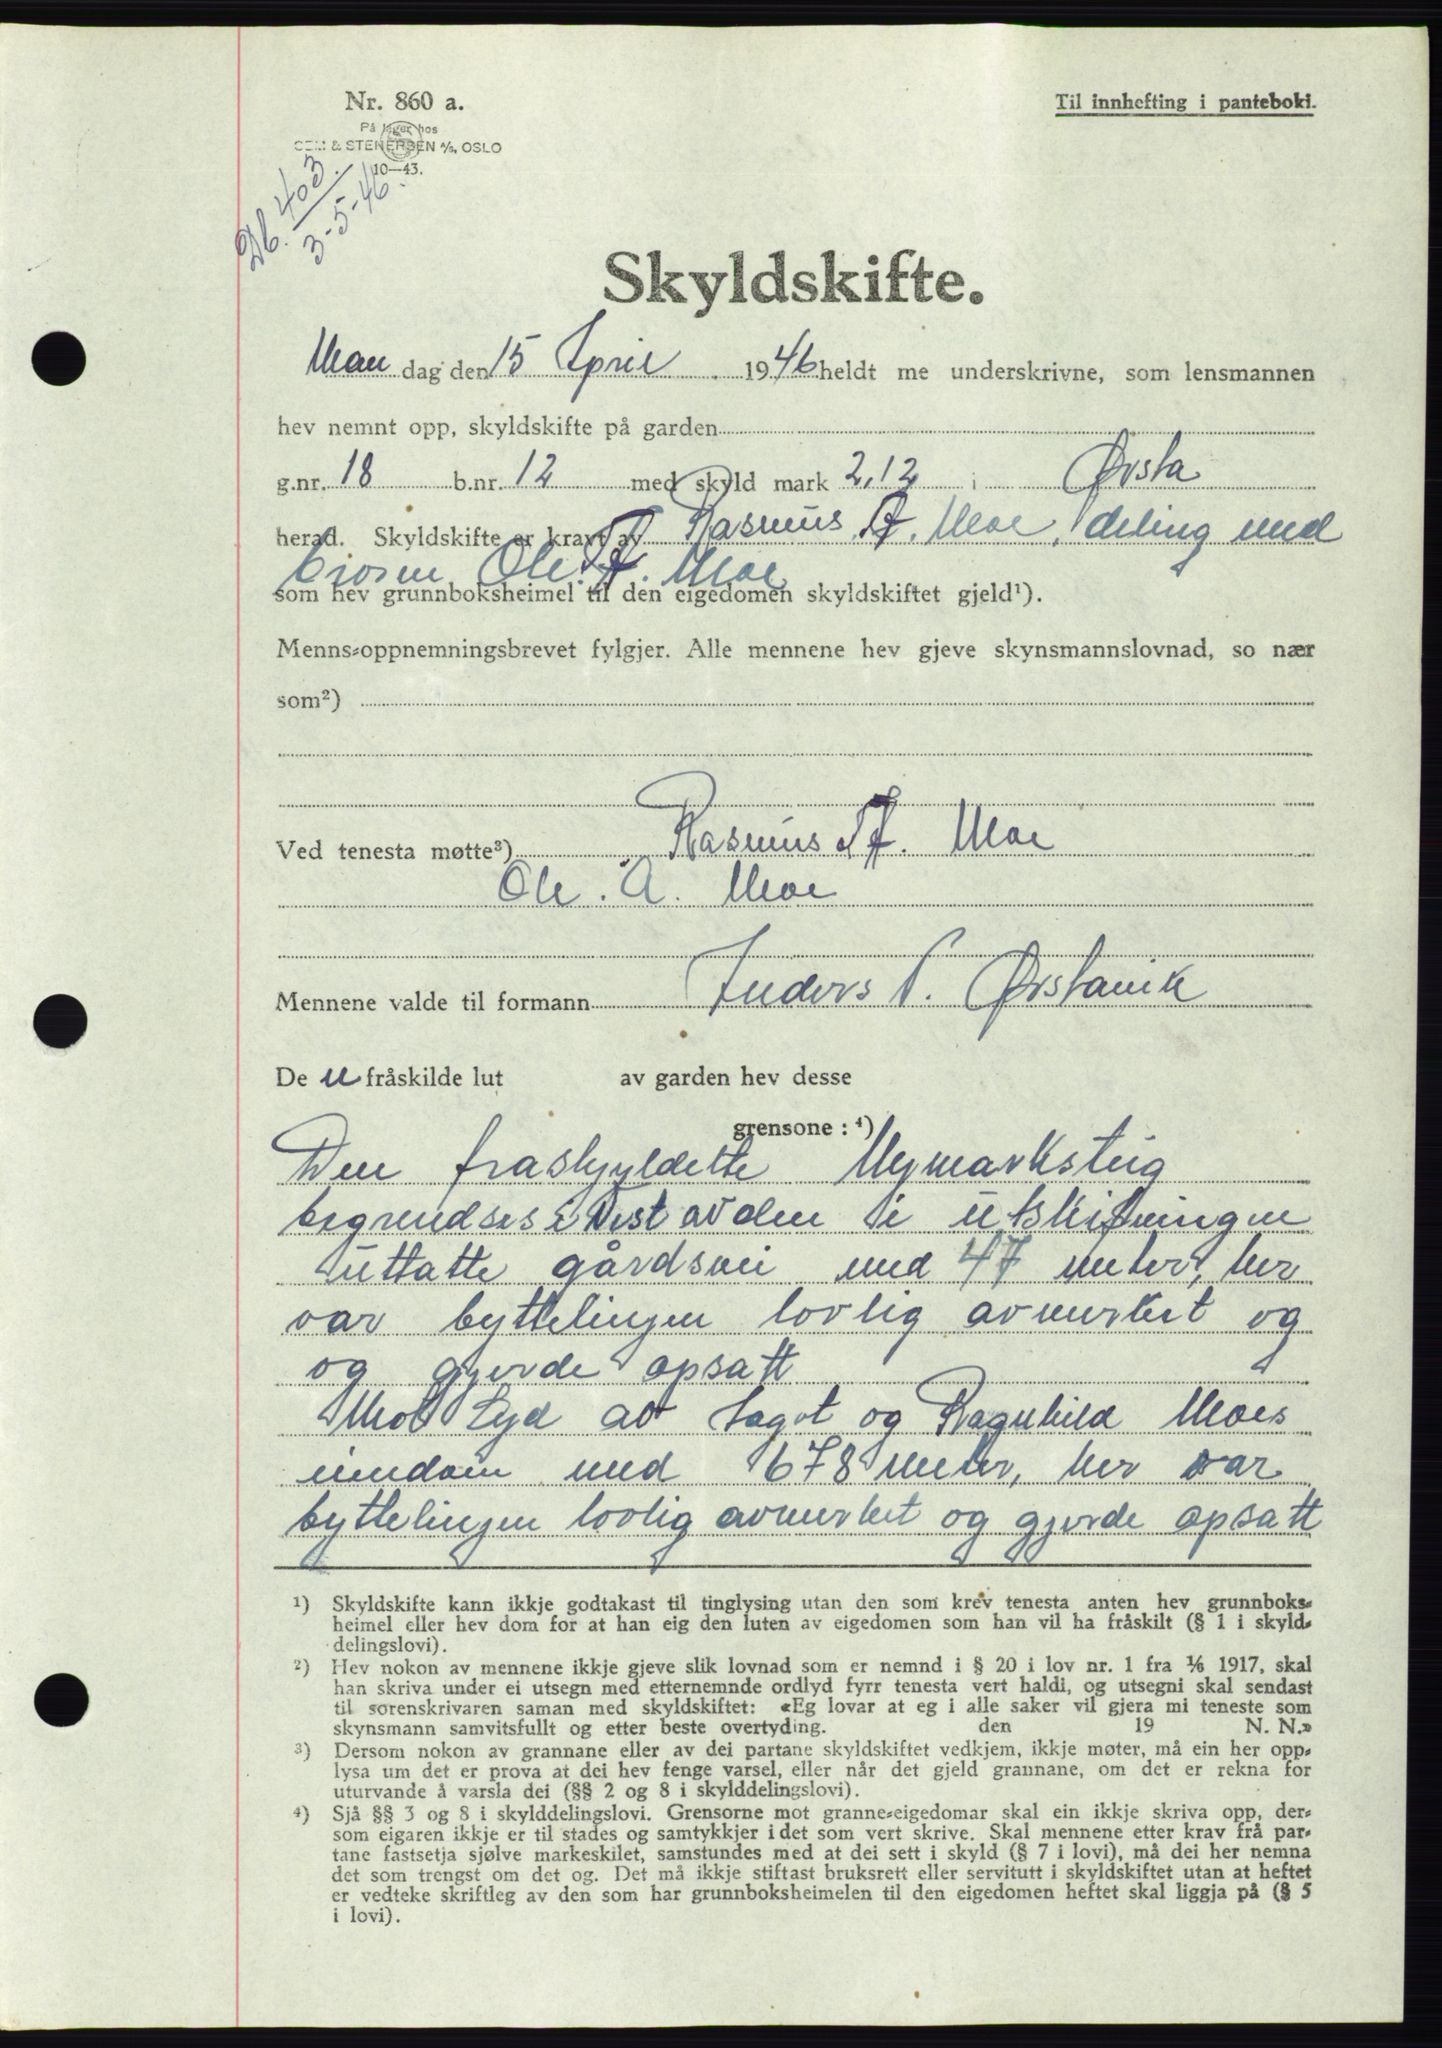 Nr. 860 a.
Til innhefting i panteboki.
På lager hos
SEM & STENERSEN A/S, OSLO
10—43.
Db. 403
3-5-46.
Skyldskifte.
Man dag den 15 April 1946 heldt me underskrivne, som lensmannen
hev nemnt opp, skyldskifte på garden
g.nr. 18 b.nr. 12 med skyld mark 2,12 i Ørsta
herad. Skyldskifte er kravt av Rasmus A. Moe, deling med
broren Ole. A. Moe
som hev grunnboksheimel til den eigedomen skyldskiftet gjeld¹).
Menns-oppnemningsbrevet fylgjer. Alle mennene hev gjeve skynsmannslovnad, so nær
som²)
Ved tenesta møtte³) Rasmus A. Moe
Ole. A. Moe
Mennene valde til formann Anders P. Ørstavik
De n fråskilde lut av garden hev desse
grensone : ⁴)
Den fraskyldette Nymarksteig
begrendses i Vest av den i utskiftningen
uttatte gårdsvei med 47 meter, her
var byttelingen lovlig avmerket og
og gjerde opsatt
Mot Syd av og Ragnhild Moes
eiendom med 678 meter, her var
byttelingen lovlig avmerket og gjerde opsatt
¹) Skyldskifte kann ikkje godtakast til tinglysing utan den som krev tenesta anten hev grunnboks-
heimel eller hev dom for at han eig den luten av eigedomen som han vil ha fråskilt (§ 1 i skyld-
delingslovi).
²) Hev nokon av mennene ikkje gjeve slik lovnad som er nemnd i § 20 i lov nr. 1 fra 1/6 1917, skal
han skriva under ei utsegn med etternemnde ordlyd fyrr tenesta vert haldi, og utsegni skal sendast
til sorenskrivaren saman med skyldskiftet: «Eg lovar at eg i alle saker vil gjera mi teneste som
skynsmann samvitsfullt og etter beste overtyding. den 19 N. N.»
³) Dersom nokon av grannane eller av dei partane skyldskiftet vedkjem, ikkje møter, må ein her opp-
lysa um det er prova at dei hev fenge varsel, eller når det gjeld grannane, om det er rekna for
uturvande å varsla dei (§§ 2 og 8 i skylddelingslovi).
⁴) Sjå §§ 3 og 8 i skylddelingslovi. Grensorne mot granne-eigedomar skal ein ikkje skriva opp, der-
som eigaren ikkje er til stades og samtykkjer i det som vert skrive. Skal mennene etter krav frå par-
tane fastsetja sjølve markeskilet, samstundes med at dei sett i skyld (§ 7 i lovi), må dei her nemna
det som trengst om det og. Det må ikkje stiftast bruksrett eller servitutt i skyldskiftet utan at heftet
er vedteke skriftleg av den som har grunnboksheimelen til den eigedomen heftet skal liggja på (§ 5
i lovi).